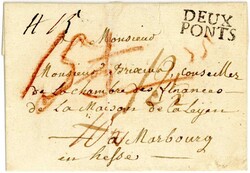 DEUX
PONTS
a Monsieur
Monsieur Conseiller
de la Chambre des Finances
de la Maison de la Leyen
a Marbourg
en hesse